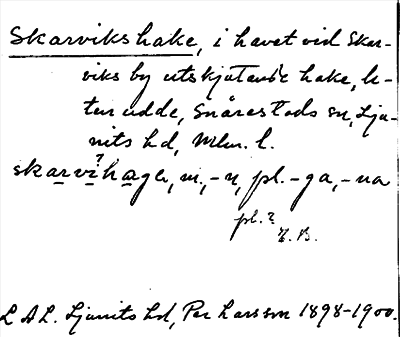 Skarvikshake, i havet vid Skar-
viks by utskjutande hake, li-
ten udde, Snårestads sn, Lju-
nits hd, Mlm. l.
skarvihaga, m., -n, pl. -ga, -na
?
pl.?
E. B.
L A L. Ljunits hd, Per Larsson 1898-1900.